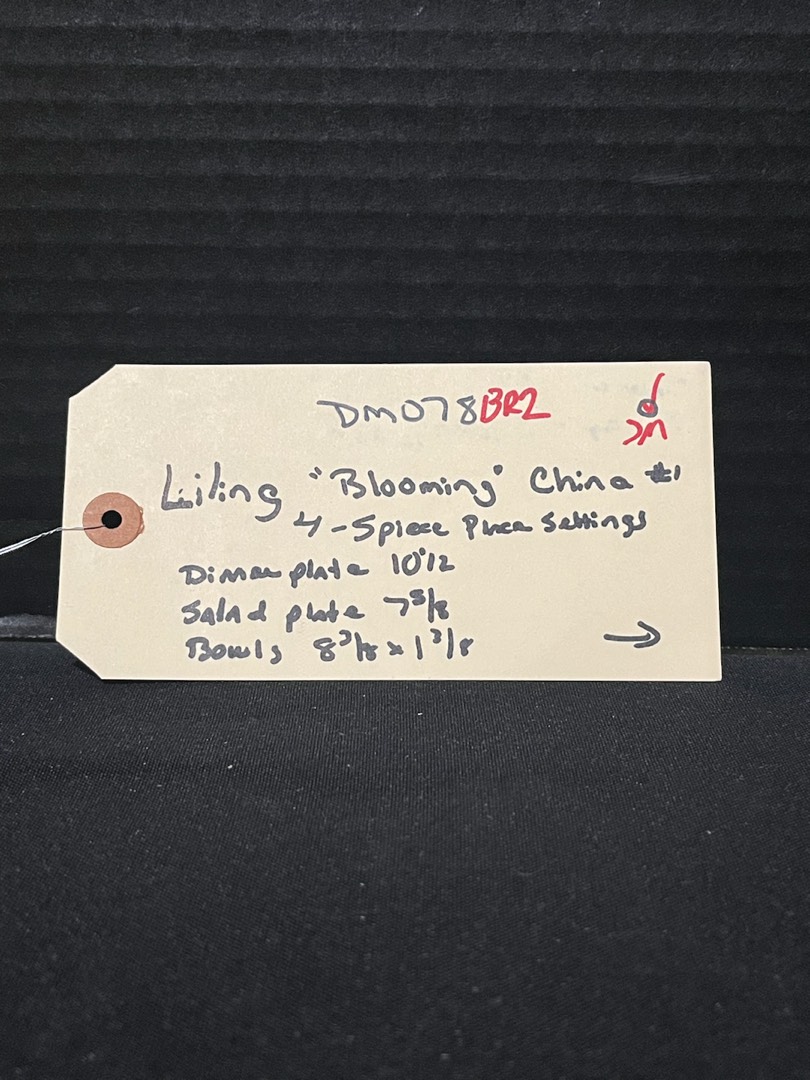 DM078BR2
JM
Liling "Blooming" China #1
4-5piece Place Settings
Dinner plate 10"12
Salad plate 7 5/8
Bowls 8 3/8 x 1 3/8 →